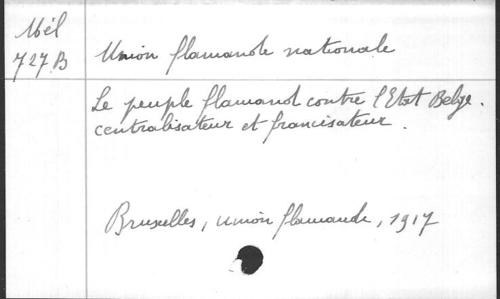 Mél
727 B
Union flamande nationale
Le peuple flamand contre l'Etat Belge.
centralisateur et francisateur.
Bruxelles, Union flamande, 1917